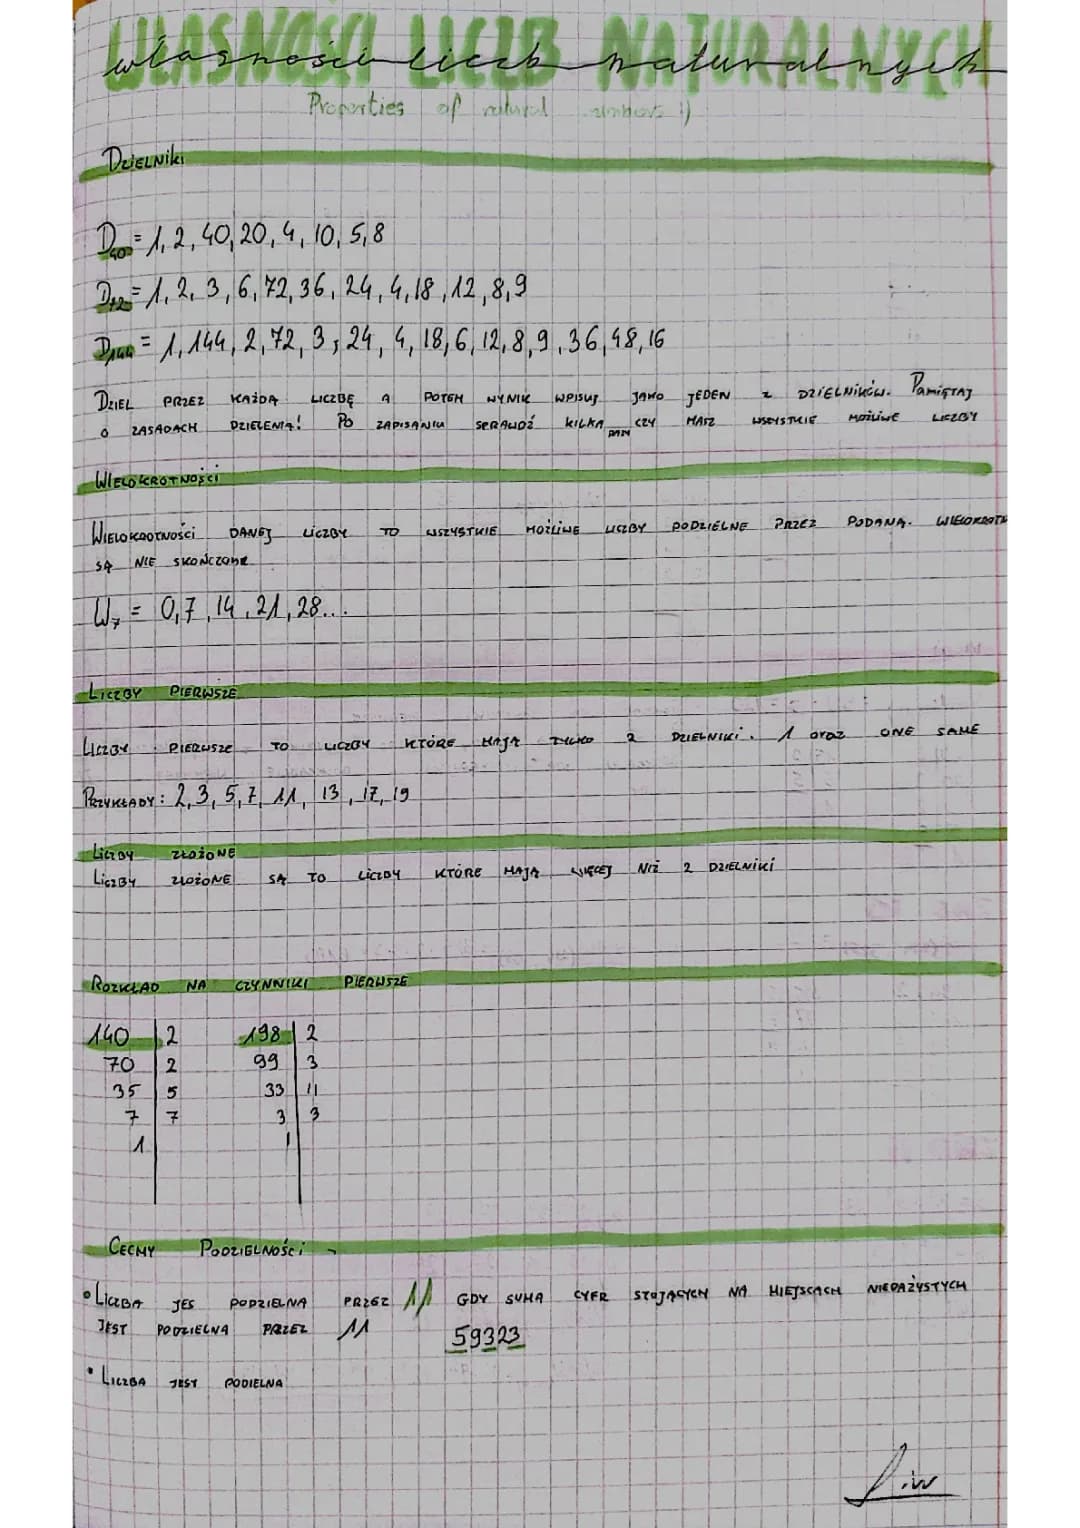 WŁASNOŚCI LICZB NATURALNYCH
własności liczb naturalnych
Properties of natural numbers :)
DZIELNIKI
D40 = 1, 2, 40, 20, 4, 10, 5, 8
D72 = 1, 2, 3, 6, 72, 36, 24, 4, 18, 12, 8, 9
D144 = 1, 144, 2, 72, 3, 24, 4, 18, 6, 12, 8, 9, 36, 48, 16
DZIEL PRZEZ KAŻDĄ LICZBĘ A POTEM WYNIK WPISUJ JAKO JEDEN Z DZIELNIKÓW. PAMIĘTAJ
O ZASADACH DZIELENIA! PO ZAPISANIU SPRAWDŹ KILKA RAZY CZY MASZ WSZYSTKIE MOŻLIWE LICZBY
WIELOKROTNOŚCI
WIELOKROTNOŚCI DANEJ LICZBY TO WSZYSTKIE MOŻLIWE LICZBY PODZIELNE PRZEZ PODANĄ. WIELOKROTN
SĄ NIE SKOŃCZONE
W7 = 0, 7, 14, 21, 28...
LICZBY PIERWSZE
LICZBY PIERWSZE TO LICZBY KTÓRE MAJĄ TYLKO 2 DZIELNIKI. 1 oraz ONE SAME
PRZYKŁADY: 2, 3, 5, 7, 11, 13, 17, 19
LICZBY ZŁOŻONE
LICZBY ZŁOŻONE SĄ TO LICZBY KTÓRE MAJĄ WIĘCEJ NIŻ 2 DZIELNIKI
ROZKŁAD NA CZYNNIKI PIERWSZE
140 | 2 198 | 2
70 | 2 99 | 3
35 | 5 33 | 11
7 | 7 3 | 3
1 | 1 |
CECHY PODZIELNOŚCI
• LICZBA JES PODZIELNA PRZEZ 11 GDY SUMA CYFR STOJĄCYCH NA MIEJSCACH NIEPAŻYSTYCH
JEST PODZIELNA PRZEZ 11 59323
• LICZBA JEST PODIELNA